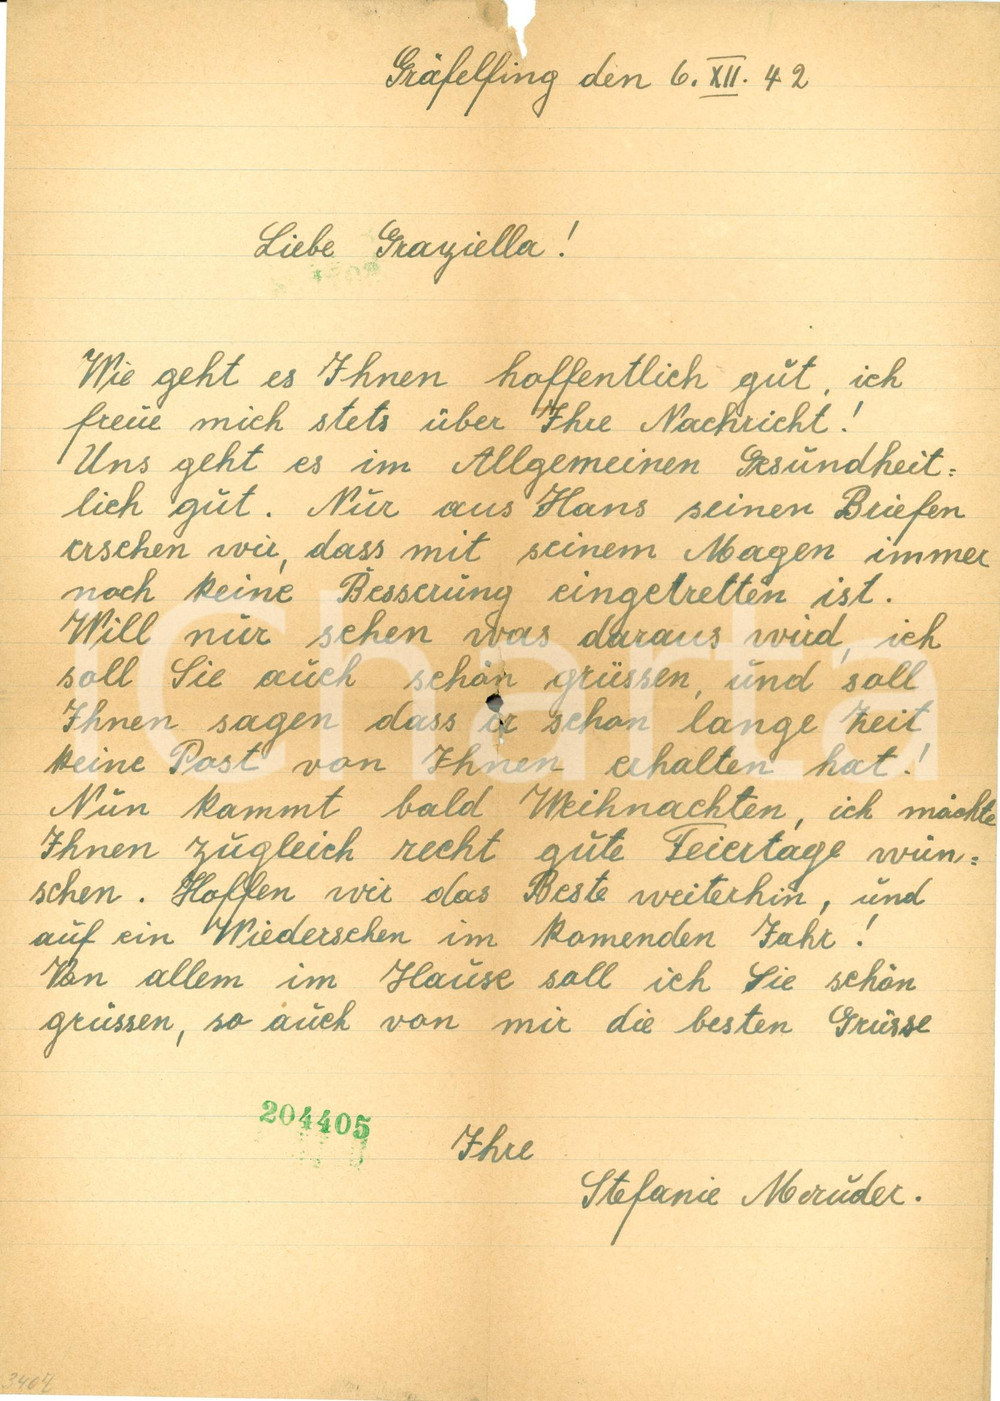 Gräfelfing den 6. XII. 42
Liebe Graziella!
Wie geht es Ihnen hoffentlich gut, ich
freue mich stets über Ihre Nachricht!
Uns geht es im Allgemeinen Gesundheit=
lich gut. Nur aus Hans seinen Briefen
ersehen wir, dass mit seinem Magen immer
noch keine Besserung eingetretten ist.
Will nur sehen was daraus wird, ich
soll Sie auch schön grüssen, und soll
Ihnen sagen dass er schon lange Zeit
keine Post von Ihnen erhalten hat!
Nun kommt bald Weihnachten, ich möchte
Ihnen zugleich recht gute Feiertage wün=
schen. Hoffen wir das Beste weiterhin, und
auf ein Wiedersehen im komenden Jahr!
Von allem im Hause soll ich Sie schön
grüssen, so auch von mir die besten Grüsse
204405
Ihre
Stefanie Meruder.
3404
Charta